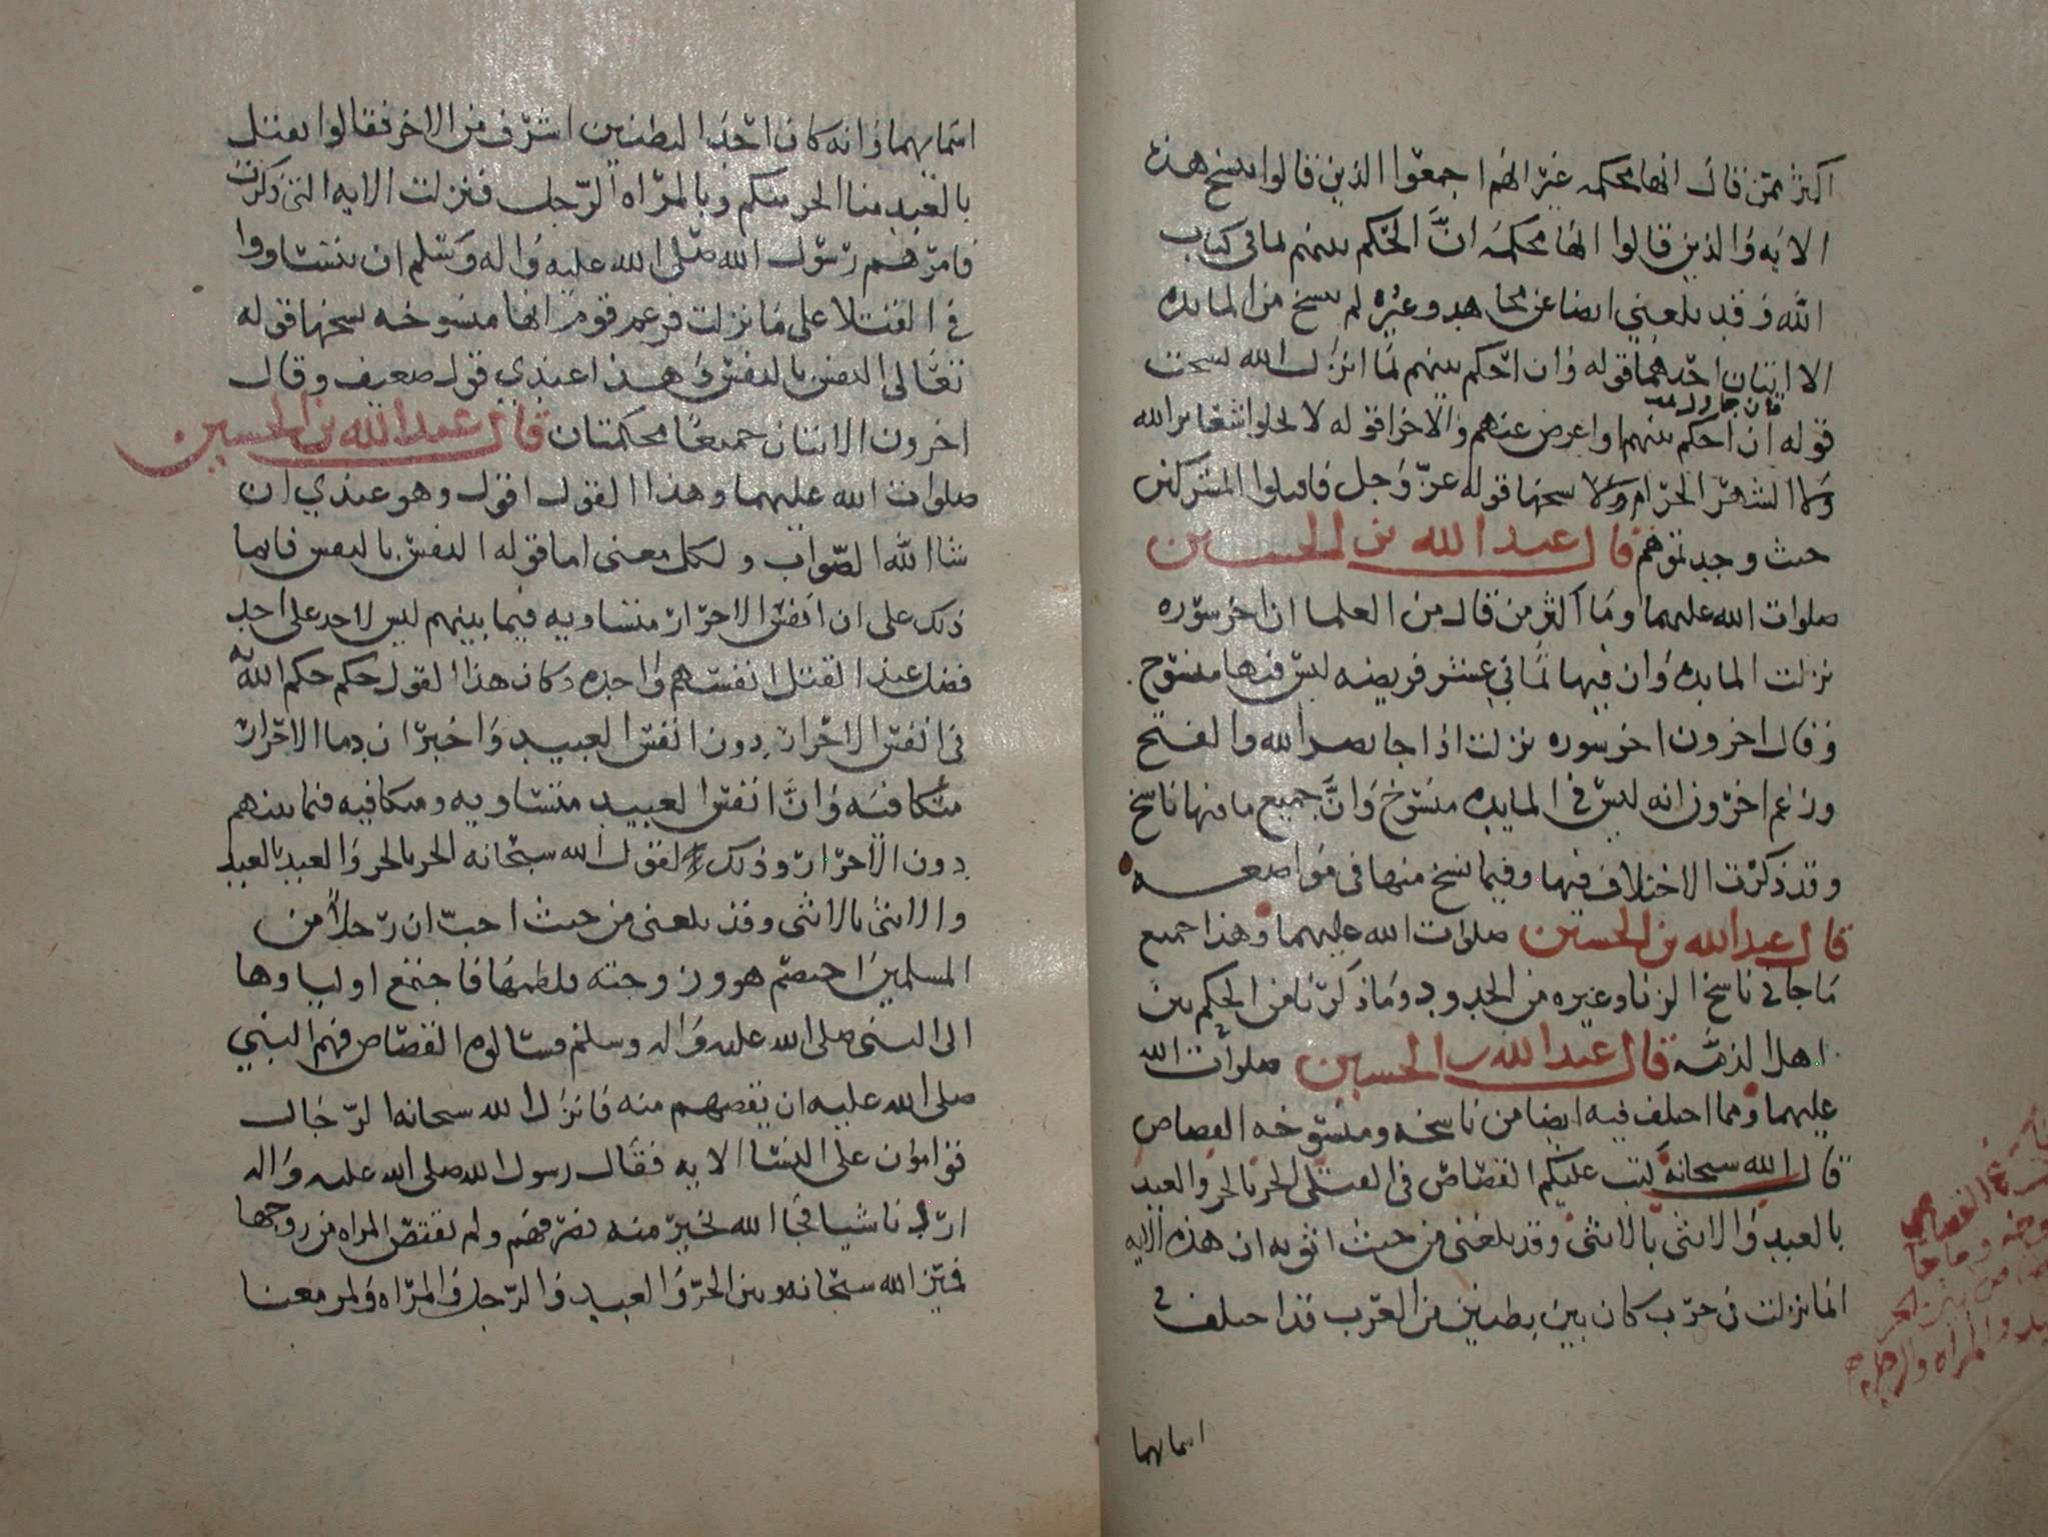 اكثر ممن قال انها محكمه غير انهم اجمعوا الذين قالوا بنسخ هذه
الايه والذين قالوا انها محكمه ان الحكم بينهم بما في كتاب
الله وقد بلغني ايضا عن مجاهد وغيره لم ينسخ من المايده
الا اثنتان احدهما قوله وان احكم بينهم بما انزل الله نسخت
فان جاوك
قوله ان احكم بينهم او اعرض عنهم والاخرا قوله لا تحلوا شعاير الله
ولا الشهر الحرام ولا نسختها قوله عز وجل فاقتلوا المشركين
حيث وجدتموهم قال عبد الله بن الحسين
صلوات الله عليهما وما اكثر من قال من العلما ان اخر سوره
نزلت المايده وان فيها ثماني عشر فريضه ليس فيها منسوخ
وقال اخرون اخر سوره نزلت اذا جا نصر الله والفتح
وزعم اخرون انه ليس في المايده منسوخ وان جميع ما فيها ناسخ
وقد ذكرت الاختلاف فيها وفيما نسخ منها في مواضعه
قال عبد الله بن الحسين صلوات الله عليهما وهذا جميع
ما جا في ناسخ الزنا وغيره من الحدود وما ذكرنا من الحكم بين
اهل الذمه قال عبد الله بن الحسين صلوات الله
عليهما ومما اختلف فيه ايضا من ناسخه ومنسوخه القصاص
قال الله سبحانه كتب عليكم القصاص في القتلى الحر بالحر والعبد
بالعبد والانثى بالانثى وقد بلغني من حيث اثق به ان هذه الايه
انما نزلت في حرب كان بين بطنين من العرب قد اختلف في
اسمايهما
القصاص
وما جا
بين الحر
والمراه والرجل
اسمايهما وانه كان احد البطنين اشرف من الاخر فقالوا يقتل
بالعبد منا الحر منكم وبالمراه الرجل فنزلت الايه التي ذكرت
فامرهم رسول الله صلى الله عليه واله وسلم ان يتساووا
في القتلا على ما نزلت فزعم قوم انها منسوخه نسختها قوله
تعالى النفس بالنفس وهذا عندي قول ضعيف وقال
اخرون الايتان جميعا محكمتان قال عبد الله بن الحسين
صلوات الله عليهما وهذا القول اقول وهو عندي ان
شا الله الصواب ولكل معنى اما قوله النفس بالنفس فانما
ذلك على ان انفس الاحرار متساويه فيما بينهم ليس لاحد على احد
فضل عند القتل انفسهم واحده وكان هذا القول حكم حكم الله به
في انفس الاحرار دون انفس العبيد واخبر ان دما الاحرار
متكافيه وان انفس العبيد متساويه ومتكافيه فيما بينهم
دون الاحرار وذلك لقول الله سبحانه الحر بالحر والعبد بالعبد
والانثى بالانثى وقد بلغني من حيث احب ان رجلا من
المسلمين اختصم هو وزوجته فلطمها فاجتمع اولياوها
الى النبي صلى الله عليه واله وسلم فسالوه القصاص فهم النبي
صلى الله عليه ان يقصهم منه فانزل الله سبحانه الرجال
قوامون على النسا الايه فقال رسول الله صلى الله عليه واله
اردنا شيا فجا الله بخير منه فصرفهم ولم تقتص المراه من زوجها
فميز الله سبحانه بين الحر والعبيد والرجل والمراه ولم معنا